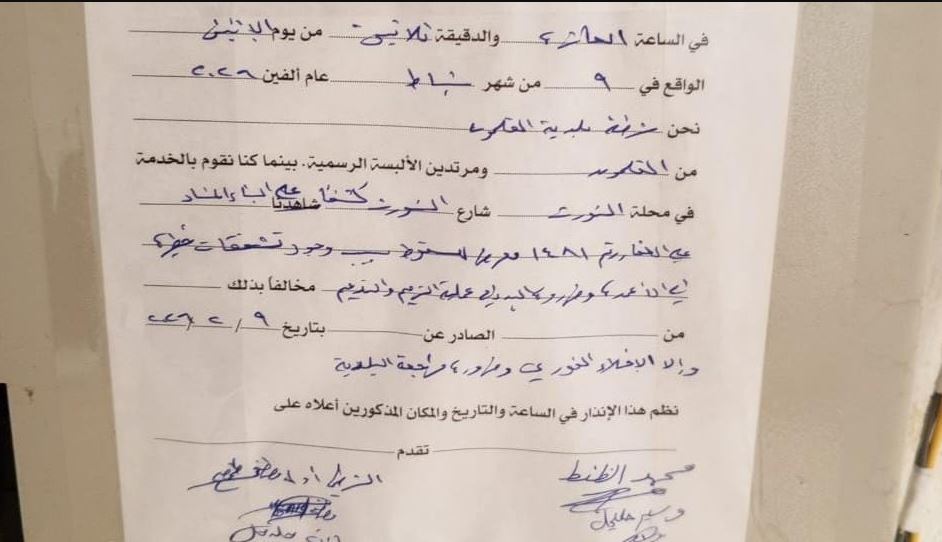 في الساعة العاشرة والدقيقة ثلاثين من يوم الاثنين
الواقع في ٩ من شهر شباط عام ألفين ٢٠٢٦
نحن شرطة بلدية القلمون
من القلمون ومرتدين الألبسة الرسمية. بينما كنا نقوم بالخدمة
في محلة شارع كشفاً شاهدنا على البناء المشاد
على العقار رقم ١٤٨١ معرض للسقوط بسبب وجود تشققات خطيرة
في الأعمدة وضرورة عملية الترميم والتدعيم مخالفاً بذلك
من الصادر عن بتاريخ ٩/٢/٢٠٢٦
وإلا الإخلاء الفوري وضرورة مراجعة البلدية
نظم هذا الإنذار في الساعة والتاريخ والمكان المذكورين أعلاه على
تقدم
محمد الظنط
وسيم